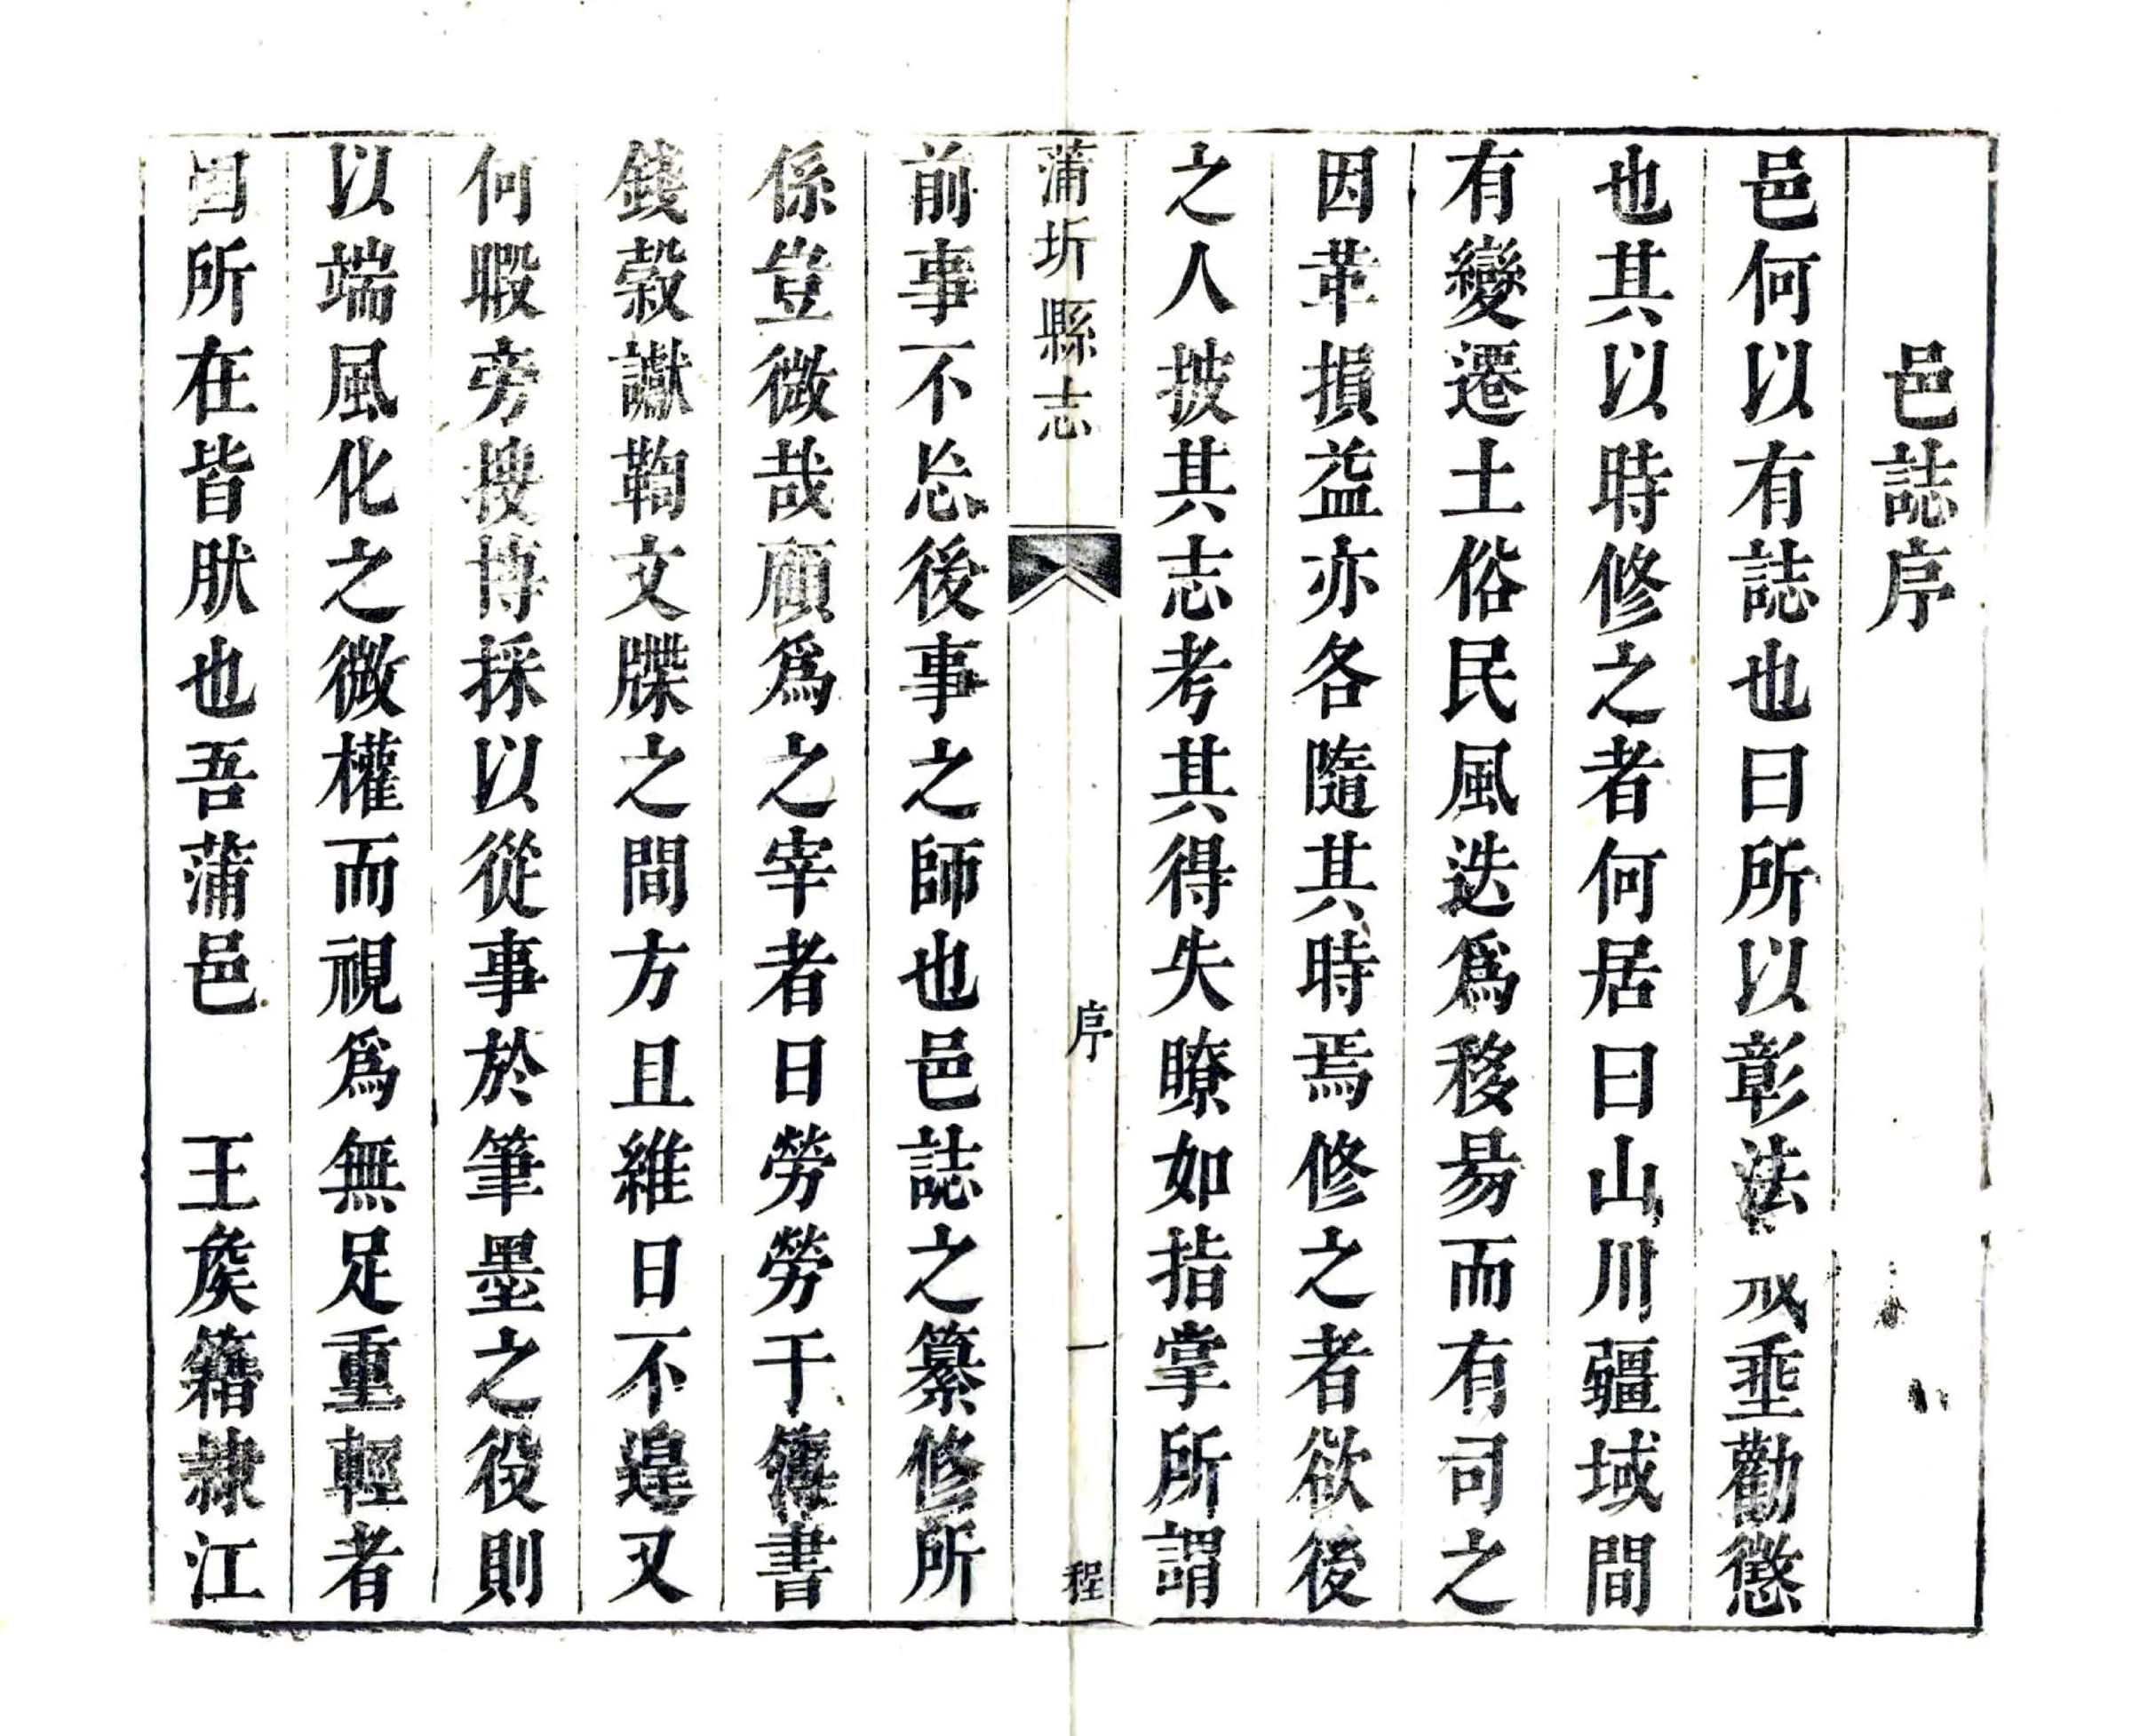 邑誌序
邑何以有誌也曰所以彰法戒垂勸懲
也其以時修之者何居曰山川疆域間
有變遷土俗民風迭爲移昜而有司之
因革損益亦各隨其時焉修之者欲後
之人披其志考其得失瞭如指掌所謂
蒲圻縣志
序
一
程
前事不忩後事之師也邑誌之纂修所
係豈微哉顧爲之宰者日勞勞于簿書
錢榖讞鞫文牒之間方且維日不遑又
何暇旁搜博採以從事於筆墨之役則
以端風化之微權而視爲無足重輕者
固所在皆肰也吾蒲邑 王矦籍隷江